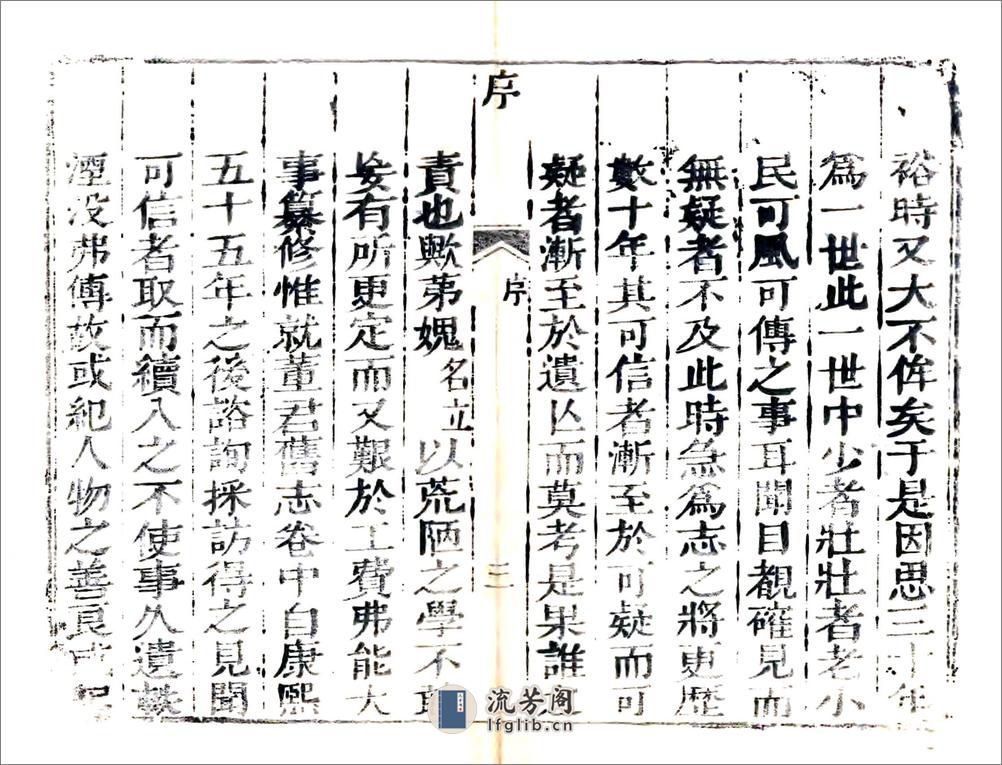 裕時又大不侔矣于是因思三十年
爲一世此一世中少者壯壯者老小
民可風可傳之事耳聞目覩確見而
無疑者不及此時急爲志之將更歴
數十年其可信者漸至於可疑而可
疑者漸至於遺亾而莫考是果誰之
序
序
三
責也歟第媿名立以荒陋之學不敢
妄有所更定而又艱於工費弗能大
事纂修惟就董君舊志卷中自康熙
五十五年之後諮詢採訪得之見聞
可信者取而續入之不使事久遺軼
湮没弗傳故或紀人物之善良或
流芳阁
lfglib.cn